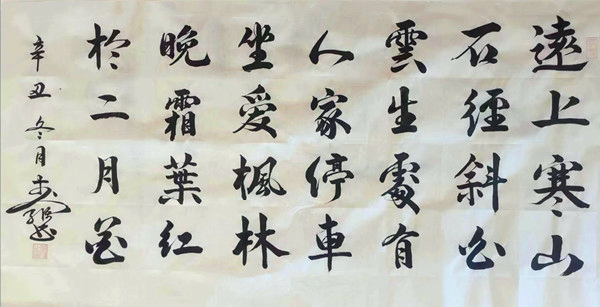 遠上寒山
石徑斜白
雲生處有
人家停車
坐愛楓林
晚霜葉紅
於二月花
辛丑冬月